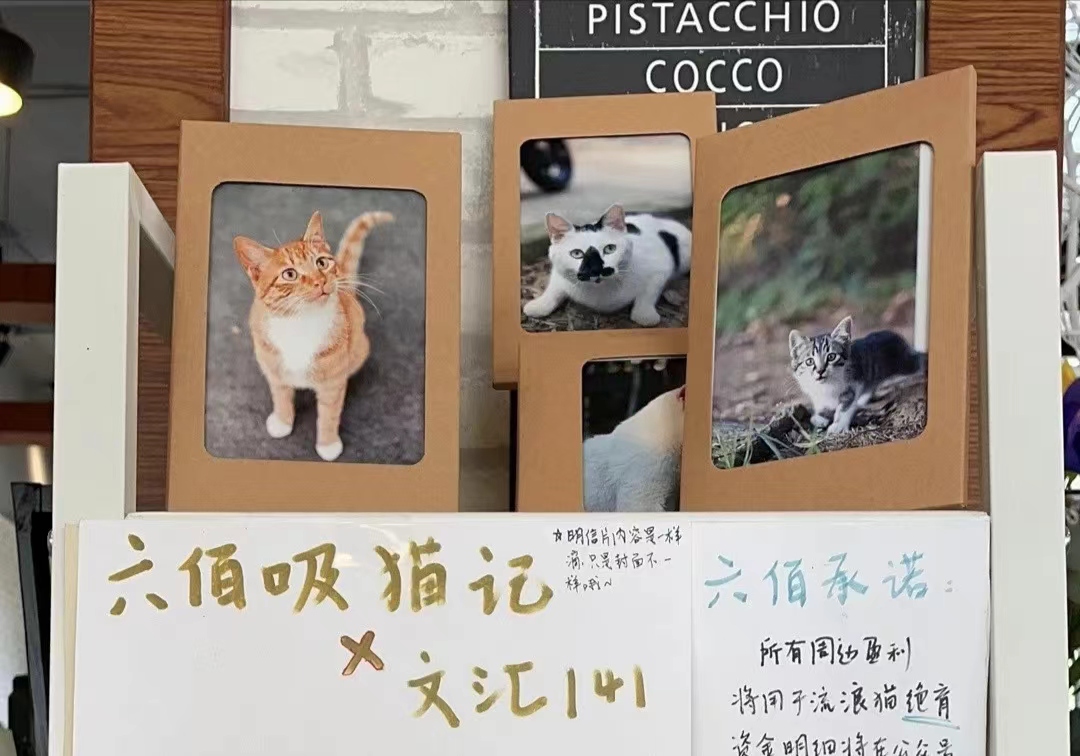 PISTACCHIO
COCCO
六佰吸猫记
×
文汇141
☆明信片内容是一样
滴,只是封面不一
样哦~
六佰承诺:
所有周边盈利
将用于流浪猫绝育
资金明细将在公众号